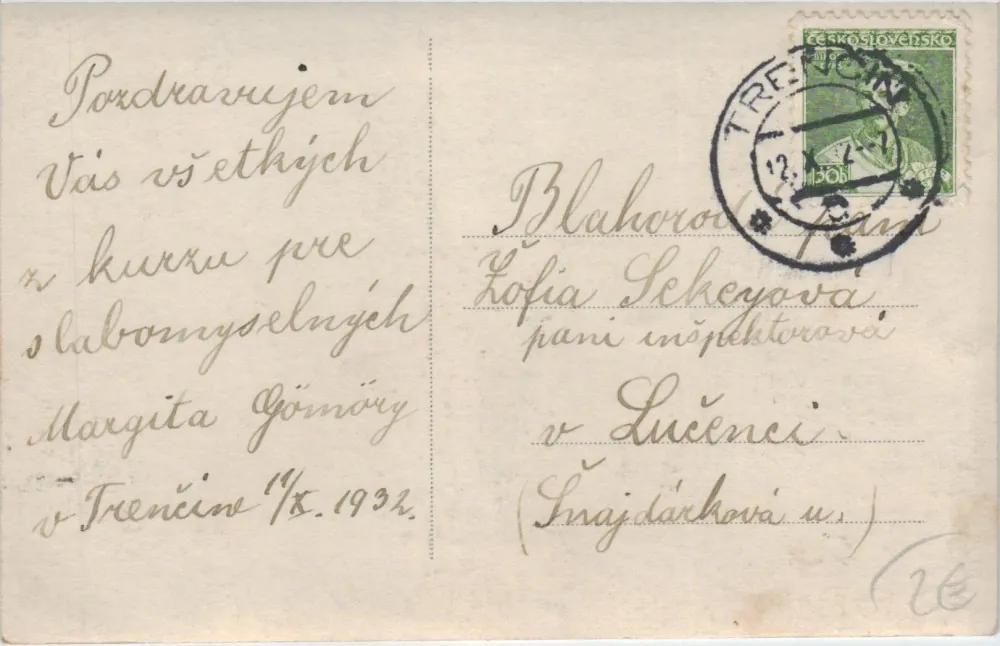 Pozdravujem
Vás všetkých
z kurzu pre
slabomyselných
Margita Gömöry
v Trenčíne 11/X. 1932.
ČESKOSLOVENSKO
TRENČÍN
12. X.
Blahorod. pani
Žofia Sekeyová
pani inšpektorová
v Lučenci.
(Šnajdárková u.)
2€